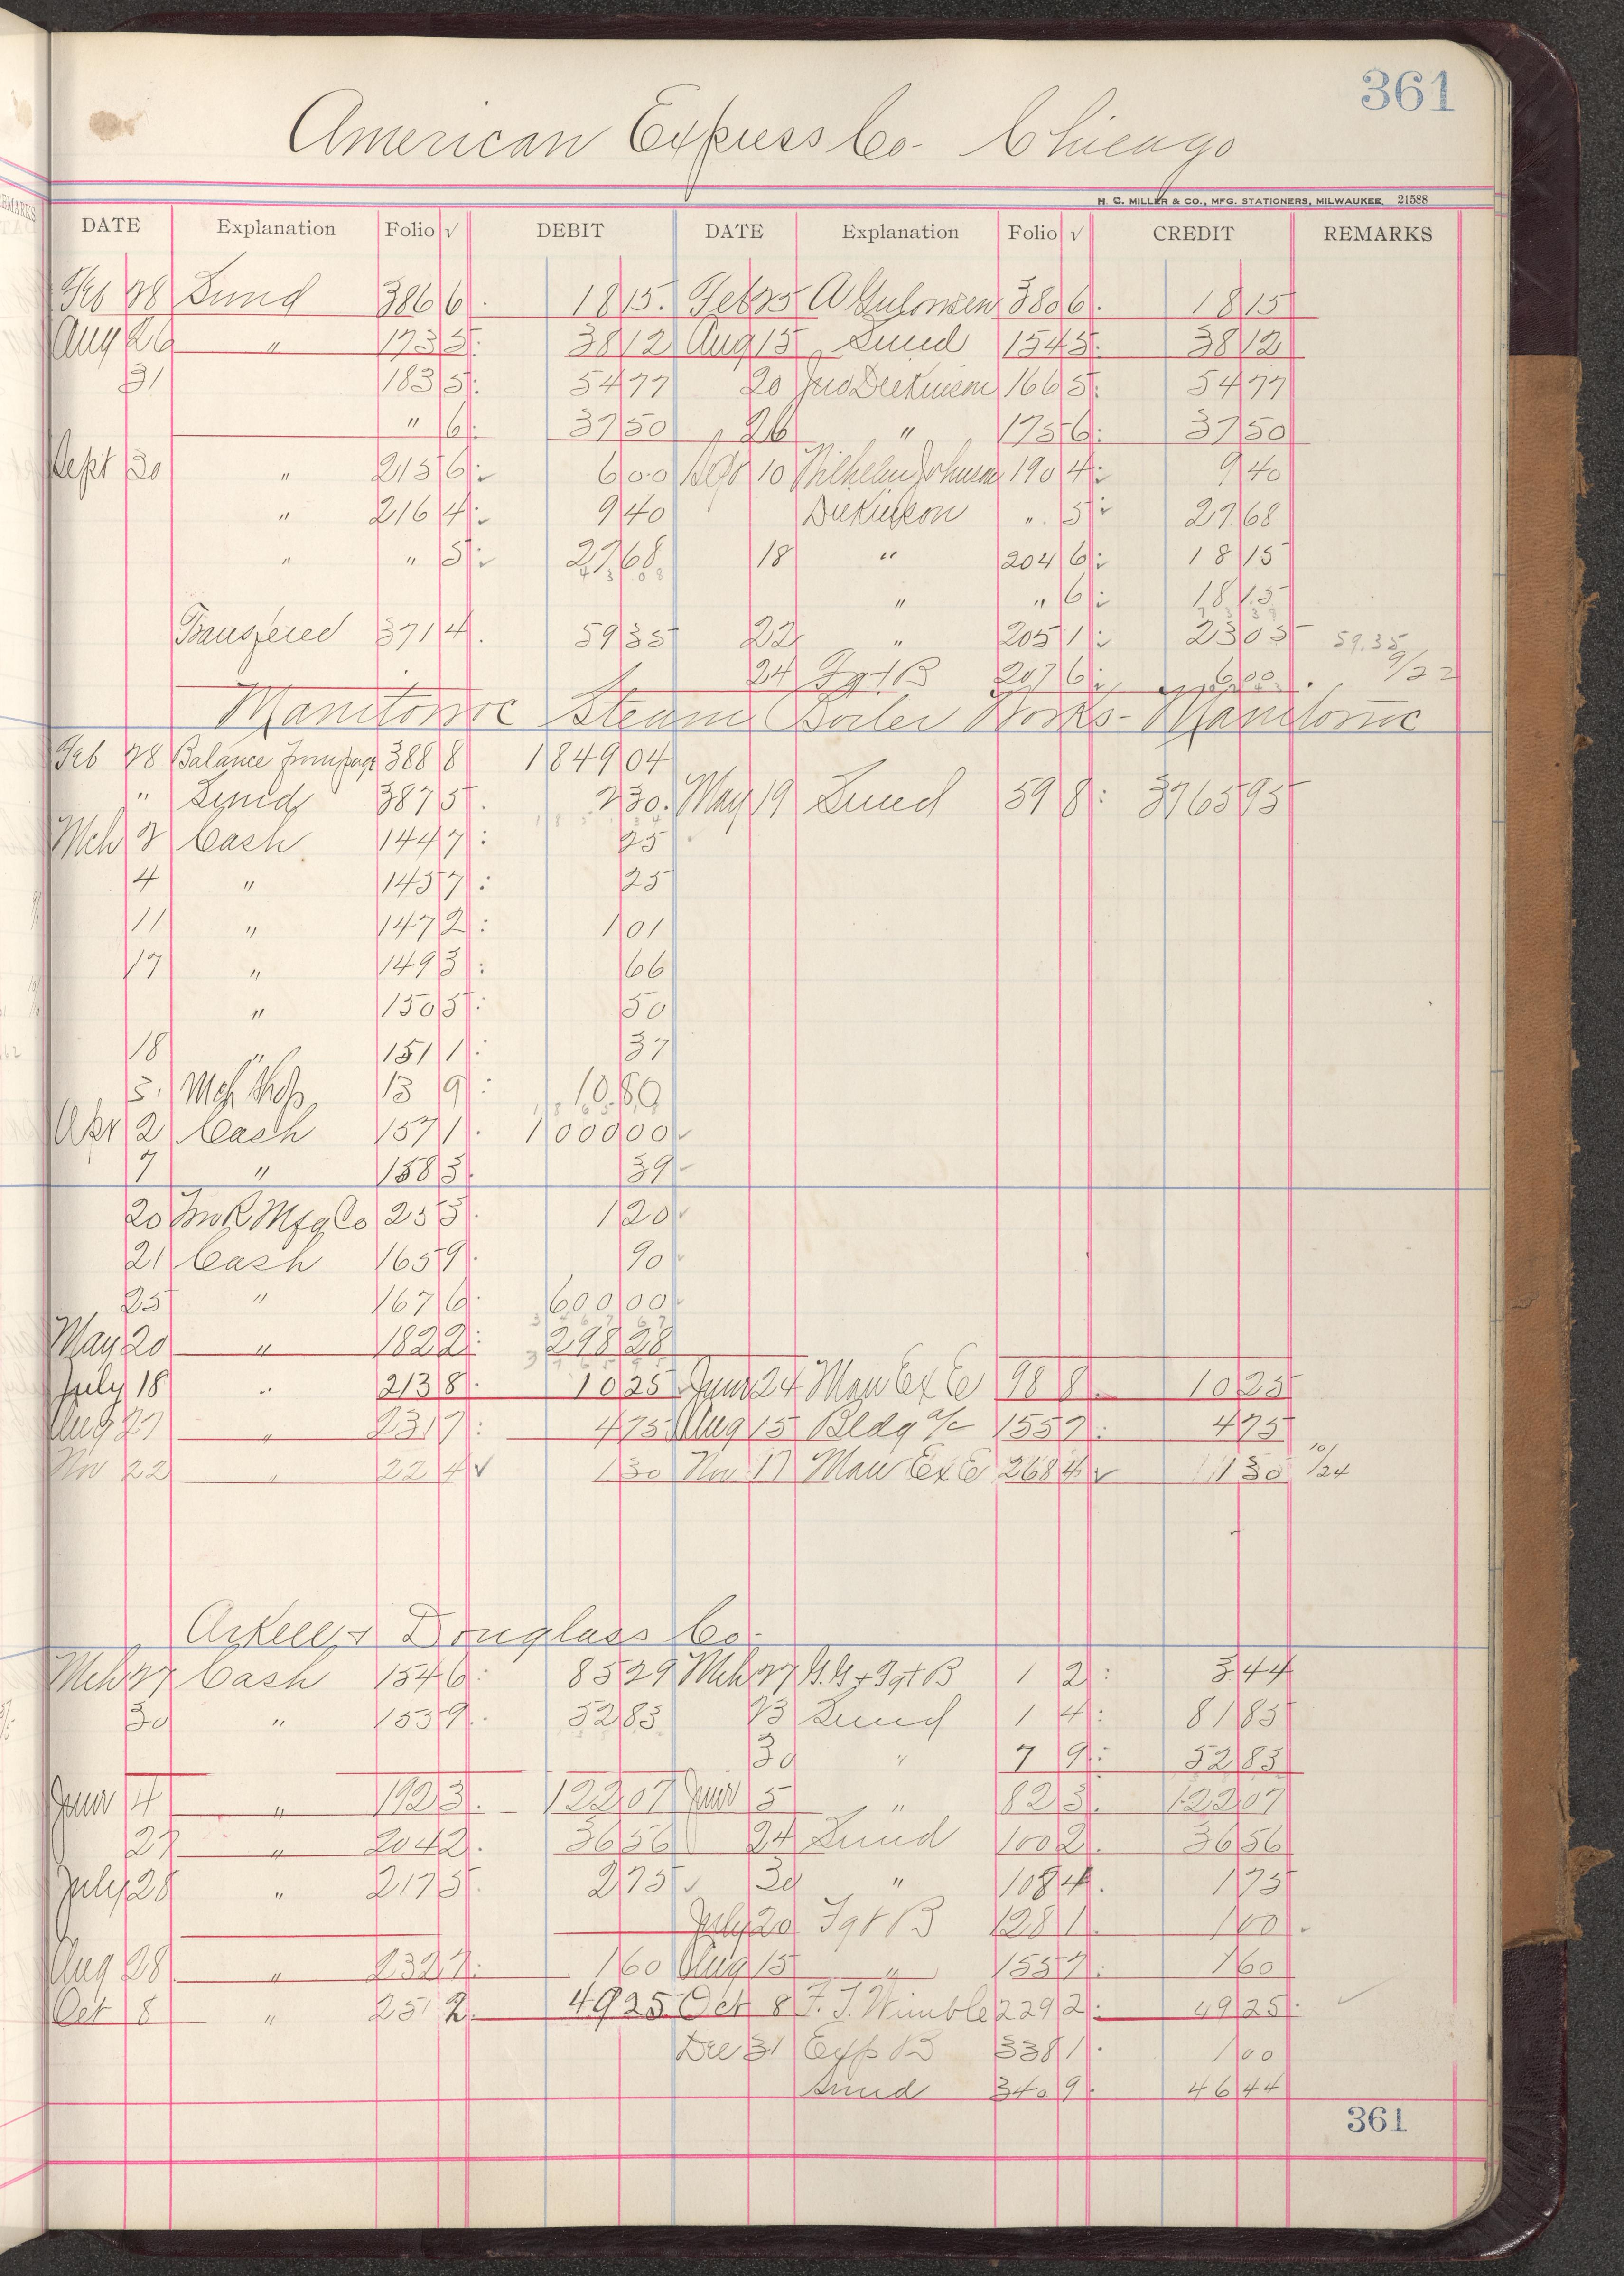 361
American Express Co. Chicago
H. C. MILLER & CO., MFG. STATIONERS, MILWAUKEE. 21588
DATE Explanation Folio √ DEBIT DATE Explanation Folio √ CREDIT REMARKS
Feb 28 Sund 386 6 18 15 Feb 25 A 380 6 18 15
Aug 26 " 173 5 38 12 Aug 15 Sund 154 5 38 12
31 183 5 54 77 20 Jno Dickinson 166 5 54 77
" 6 37 50 26 " 175 6 37 50
Sept 30 " 215 6 6 00 Sept 10 Wilhelm Johnson 190 4 9 40
" 216 4 9 40 Dickinson " 5 27 68
" " 5 27 68 18 " 204 6 18 15
" " 6 18 15
Transfered 371 4 59 35 22 " 205 1 23 05 59.35
24 Fgt B 207 6 6 00 9/22
Manitowoc Steam Boiler Works - Manitowoc
Feb 28 Balance from page 388 8 1849 04
" Sund 387 5 2 30 May 19 Sund 59 8 3765 95
Mch 2 Cash 144 7 25
4 " 145 7 25
11 " 147 2 1 01
17 " 149 3 66
" 150 5 50
18 " 151 1 37
3 Mch Shop 13 9 10 80
Apr 2 Cash 157 1 1000 00
7 " 158 3 39
20 Mfg Co 25 3 1 20
21 Cash 165 9 90
25 " 167 6 600 00
May 20 " 182 2 298 28
July 18 " 213 8 10 25 June 24 Man Ex C 98 8 10 25
Aug 27 " 231 7 4 75 Aug 15 Bldg a/c 155 7 4 75
Nov 22 " 22 4 √ 1 30 Nov 17 Man Ex C 268 4 √ 1 30 10/24
Arkell & Douglass Co.
Mch 27 Cash 154 6 85 29 Mch 27 & Fgt B 1 2 3 44
30 " 155 9 52 83 23 Sund 1 4 81 85
30 " 7 9 52 83
June 4 " 192 3 122 07 June 5 " 82 3 122 07
27 " 204 2 36 56 24 Sund 100 2 36 56
July 28 " 217 5 2 75 √ 30 " 108 4 1 75
July 20 Fgt B 128 1 1 00
Aug 28 " 232 7 1 60 Aug 15 " 155 7 1 60
Oct 8 " 25 2 49 25 Oct 8 F. J. Wimble 229 2 49 25
Dec 31 Exp B 338 1 1 00
Sund 340 9 46 44
361